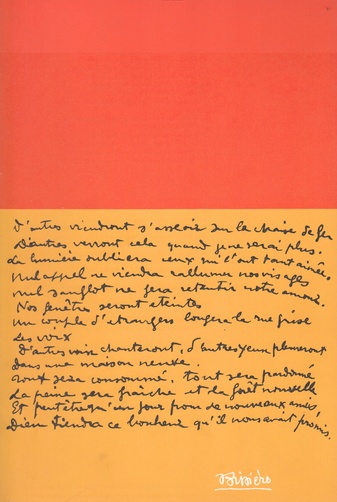 D'autres viendront s'asseoir sur la chaise de fer
D'autres verront cela quand je ne serai plus.
La lumière oubliera ceux qui l'ont tant aimée.
Nul appel ne viendra rallumer nos visages
nul sanglot ne fera retentir notre amour.
Nos fenêtres seront éteintes
un couple d'étrangers longera la rue grise
Les voix
D'autres voix chanteront, d'autres yeux pleureront
Dans une maison neuve.
tout sera consommé, tout sera pardonné
La peine sera fraîche et la forêt nouvelle
Et peut être qu'un jour pour de nouveaux amis,
Dieu tiendra ce bonheur qu'il nous avait promis.
Bissière